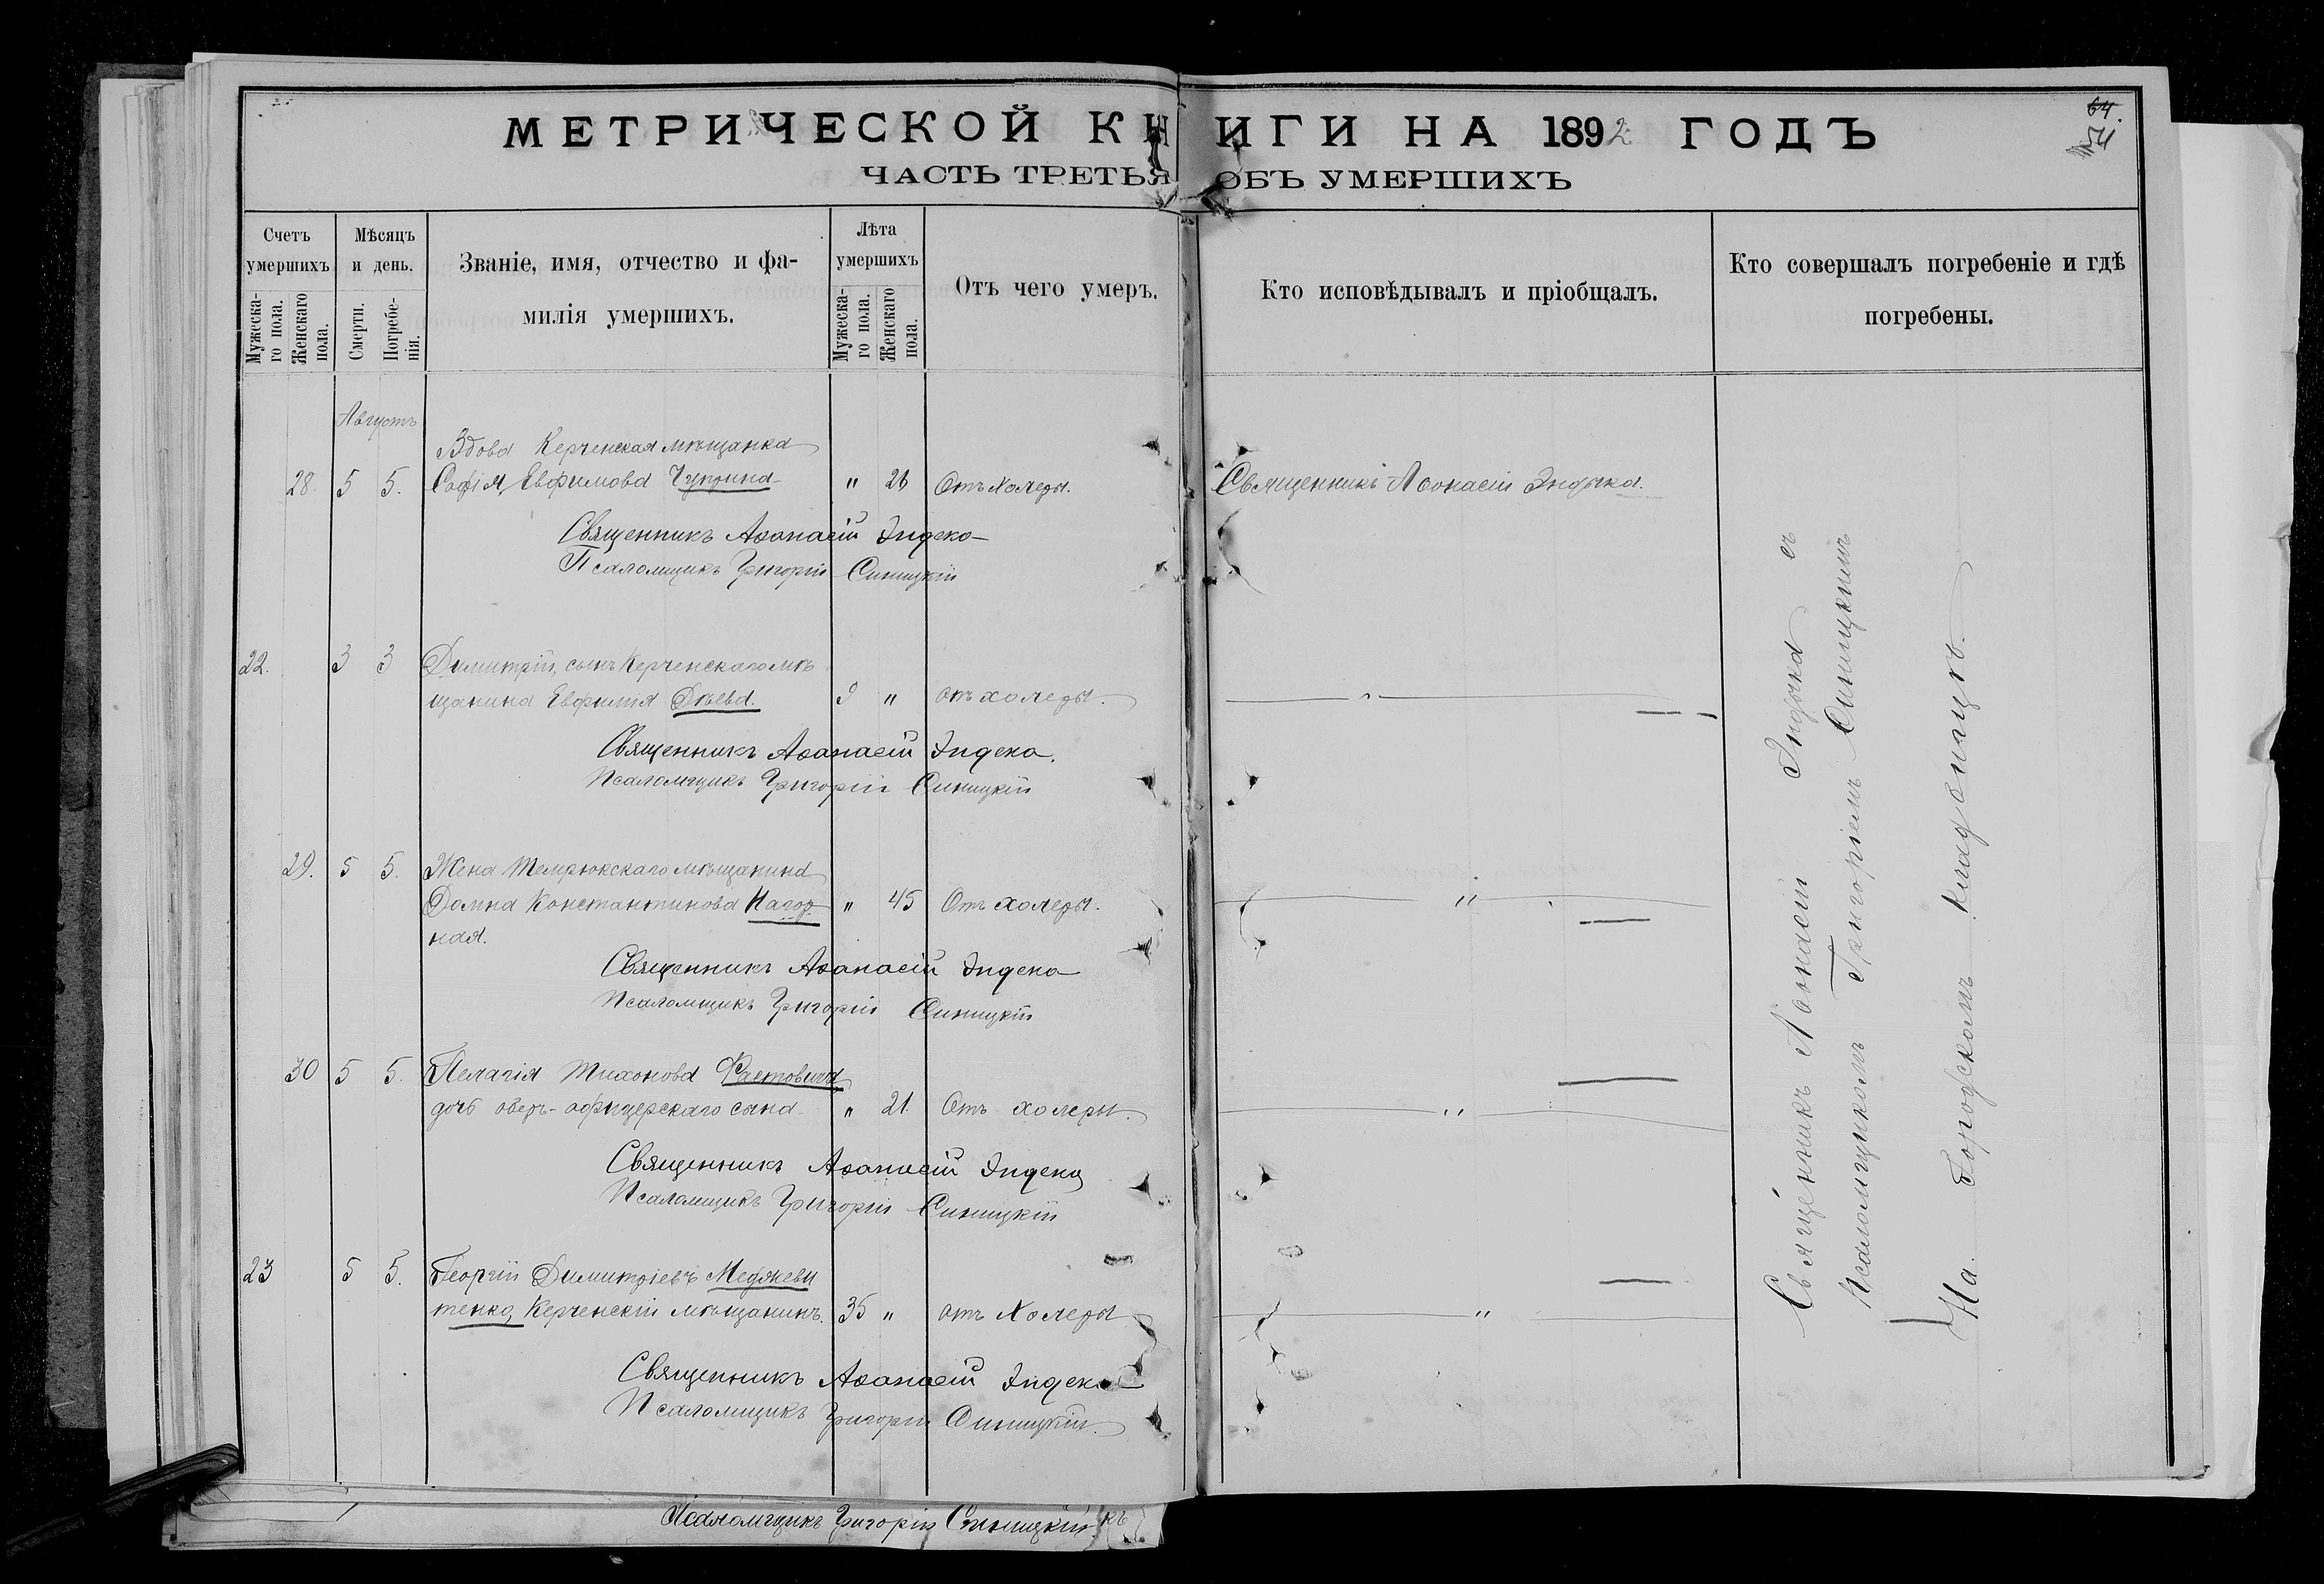 МЕТРИЧЕСКОЙ КНИГИ НА 1892 ГОДЪ
64.
54
ЧАСТЬ ТРЕТЬЯ ОБЪ УМЕРШИХЪ
Счетъ умершихъ
Мужеска-го пола.
Женскаго пола.
Мѣсяцъ и день.
Смерти.
Погребе-нія.
Званіе, имя, отчество и фа-
милія умершихъ.
Лѣта умершихъ
Мужеска-го пола.
Женскаго пола.
Отъ чего умеръ.
Кто исповѣдывалъ и пріобщалъ.
Кто совершалъ погребеніе и гдѣ
погребены.
Августъ
Вдова Керченская мѣщанка
28. 5 5. Софія Евфимова Чуприна " 26 Отъ Холеры. Священникъ Аѳонасій Эндыка.
Священникъ Аѳанасій Эндеко
Псаломщикъ Григорій Синицкій
22. 3 3 Димитрій, сынъ Керченскаго мѣ
щанина Евфимія 9 " отъ холеры.
Священникъ Аѳанасій Эндека.
Псаломщикъ Григорій Синицкій
29. 5 5. Жена Темрюкскаго мѣщанина
Домна Константинова Нагор " 45 Отъ холеры. "
ная.
Священникъ Аѳанасій Эндека
Псаломщикъ Григорій Синицкій
30 5 5. Пелагія Тихонова
дочь оберъ-офицерскаго сына " 21. Отъ холеры. "
Священникъ Аѳанасій Эндека
Псаломщикъ Григорій Синицкій
23 5 5. Георгій Димитріевъ Медяеви
тенко, Керченскій мѣщанинъ. 35 " отъ Холеры "
Священникъ Аѳанасій Эндека
Псаломщикъ Григорій Синицкій.
Священникъ Аѳонасій Эндыка съ
Псаломщикомъ Григоріемъ Синицкимъ
На Городскомъ кладбищѣ.
Псаломщикъ Григорій Синицкій